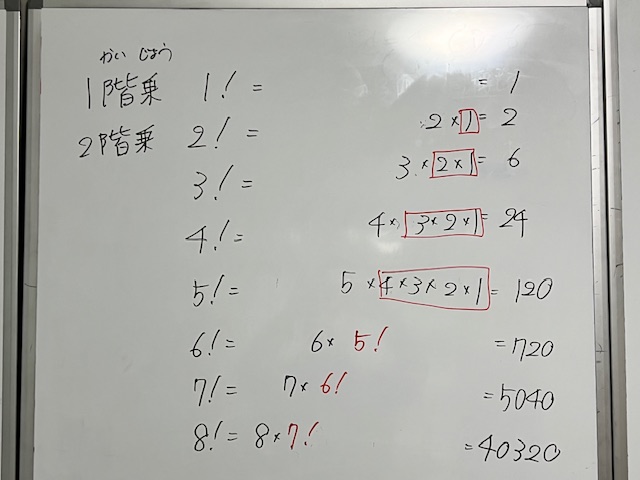 かい じょう
1階乗 1! = = 1
2階乗 2! = 2×1 = 2
3! = 3×2×1 = 6
4! = 4×3×2×1 = 24
5! = 5×4×3×2×1 = 120
6! = 6×5! = 720
7! = 7×6! = 5040
8! = 8×7! = 40320